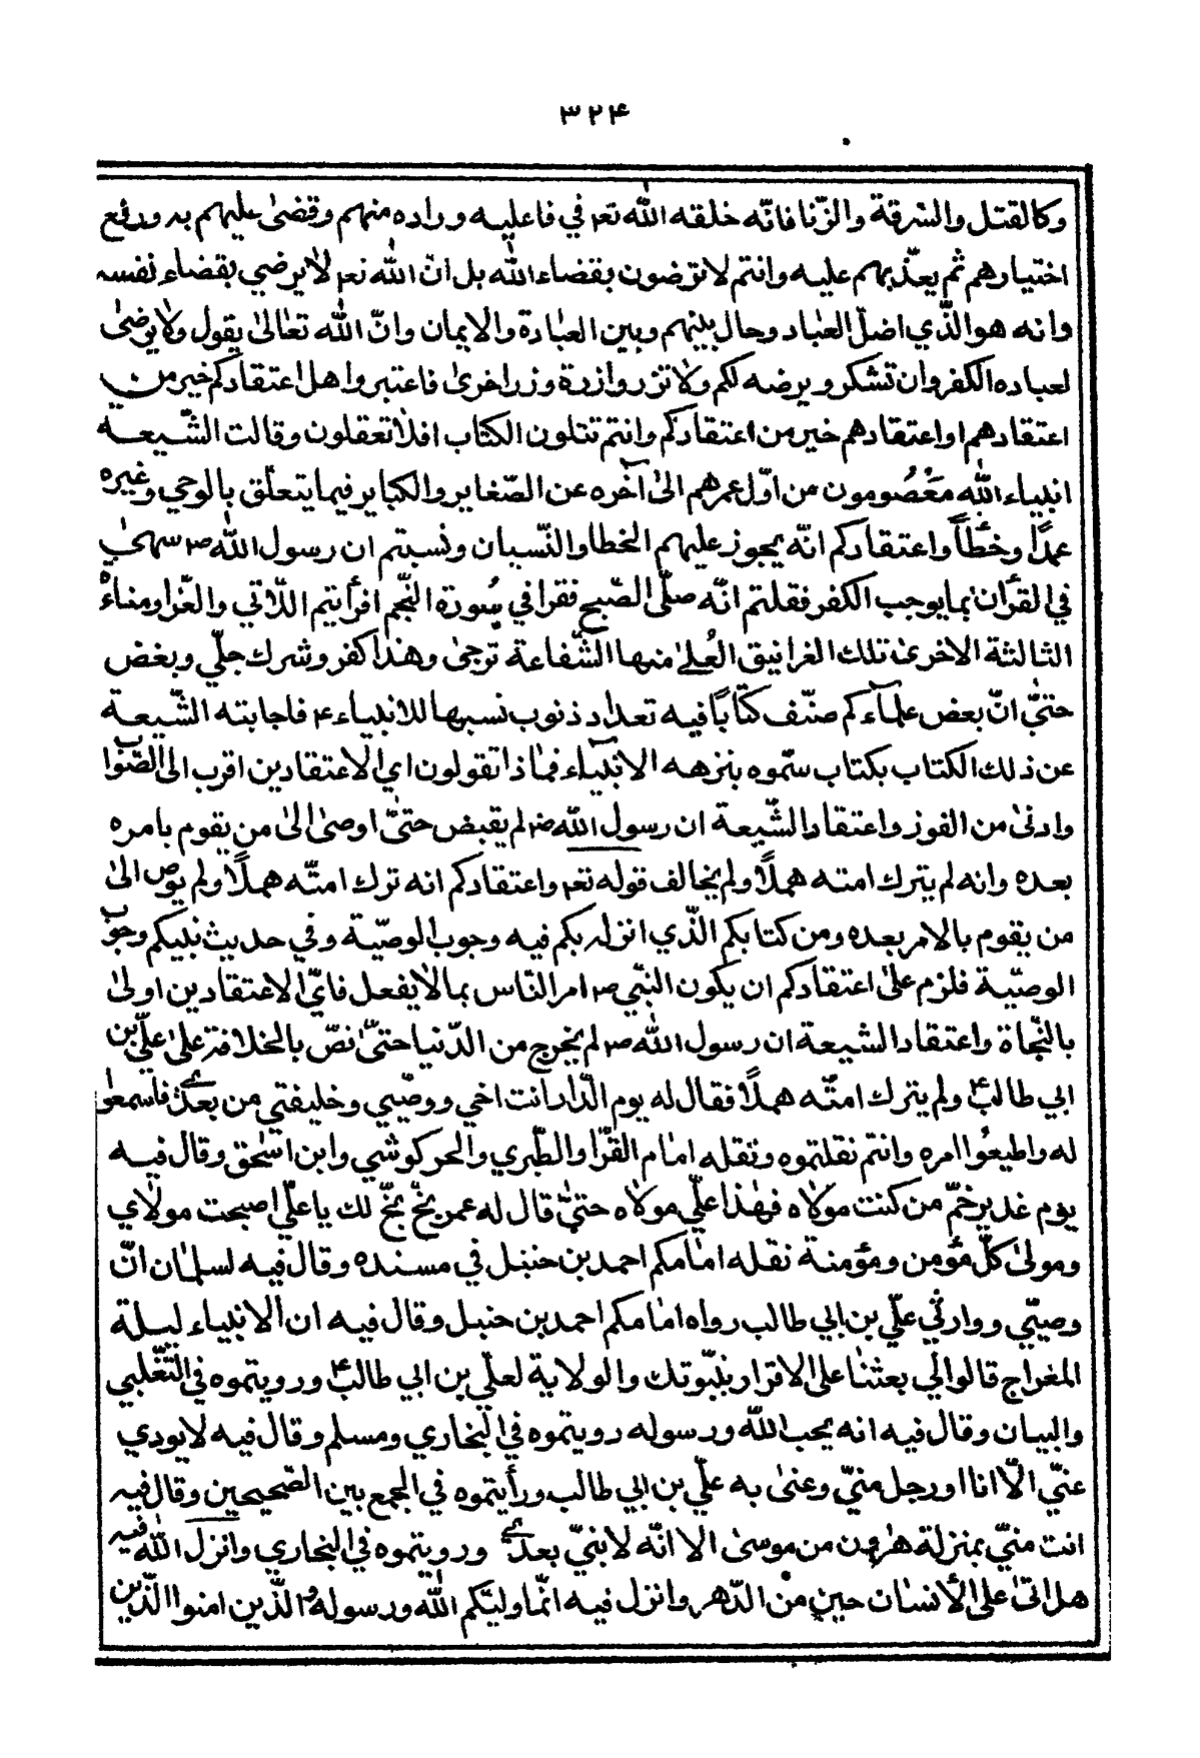 ۳۲۴
وكالقتل والسّرقة والزّنا فانّه خلقه الله تعم في فاعليه وراده منهم وقضىٰ عليهم به ورفع
اختيارهم ثم يعذّبهم عليه وانتم لا ترضون بقضاء الله بل انّ الله تعم لا يرضي بقضاء نفسه
وانه هو الّذي اضلّ العباد وحال بينهم وبين العبادة والايمان وانّ الله تعالىٰ يقول ولا يرضىٰ
لعباده الكفر وان تشكرو يرضه لكم ولا تزر وازرة وزر اخرىٰ فاعتبروا هل اعتقادكم خير من
اعتقادهم او اعتقادهم خير من اعتقادكم وانتم تتلون الكتاب افلا تعقلون وقالت الشّيعة
انبياء الله مَعْصُومون من اوّل عمرهم الىٰ آخره عن الصّغاير والكباير فيما يتعلّق بالوحي وغيره
عمدًا وخطأً واعتقادكم انّه يجوز عليهم الخطا والنّسيان ونسبتم ان رسول الله ص سهىٰ
في القرأن بما يوجب الكفر فقلتم انّه صلّى الصّبح فقرا في سُورة النّجم افرأيتم اللّاتي والعّزا ومناة
الثالثة الاخرىٰ تلك الغرانيق العُلىٰ منها الشّفاعة ترجىٰ وهذا كفر وشرك جلّي وبغض
حتىّٰ انّ بعض علمآءكم صنّف كتابًا فيه تعداد ذنوب نسبها للانبياء ع فاجابته الشّيعة
عن ذلك الكتاب بكتاب سمّوه بتنزهه الانبيآء فماذا تقولون اي الاعتقادين اقرب الى الصّواب
وادنىٰ من الفوز واعتقاد الشّيعة ان رسول الله ص لم يقبض حتىّٰ اوصىٰ الىٰ من يقوم بامره
بعده وانه لم يترك امته هملًا ولم يخالف قوله تعم واعتقادكم انه ترك امتّه هملًا ولم يوص الىٰ
من يقوم بالامر بعده ومن كتابكم الّذي انزله بكم فيه وجوب الوصيّة وفي حديث نبيكم وجوب
الوصيّة فلزم علىٰ اعتقادكم ان يكون النبّي ص امر النّاس بما لا يفعل فايّ الاعتقادين اولىٰ
بالنّجاة واعتقاد الشيعة ان رسول الله ص لم يخرج من الدّنيا حتىّٰ نصّ بالخلافة علىٰ علّي بن
ابي طالب ع ولم يترك امتّه هملًا فقال له يوم الدّار انت اخي ووصّيي وخليفتي من بعدي فاسمعوا
له واطيعُوا امره وانتم نقلتموه ونقله امام القرّا والطّبري والحركوشي وابن اسحٰق وقال فيه
يوم غدير خمّ من كنت مولاه فهٰذا علّي مولاه حتىّٰ قال له عمر بخّ بخّ لك يا علّي اصبحت مولاي
ومولىٰ كلّ مؤمن ومؤمنة نقله امامكم احمد بن حنبل في مسنده وقال فيه لسلمان انّ
وصيّي ووارثي علّي بن ابي طالب رواه امامكم احمد بن حنبل وقال فيه ان الانبياء ليلة
المعراج قالوا لي بعثنا على الاقرار بنبّوتك والولاية لعلّي بن ابي طالب ع ورويتموه في التغّلبي
والبيان وقال فيه انه يحب الله ورسوله رويتموه في البخاري ومسلم وقال فيه لا يودي
عنّي الّا انا او رجل منيّ وعنىٰ به علّي بن ابي طالب ورأيتموه في الجمع بين الصّحيحين وقال فيه
انت منيّ بمنزلة هرون من موسىٰ الا انّه لا نبيّ بعدي ورويتموه في البخاري وانزل الله فيه
هل اتىٰ على الأنسان حين من الدّهر وانزل فيه انمّا وليّكم الله ورسوله والّذين امنوا الّذين